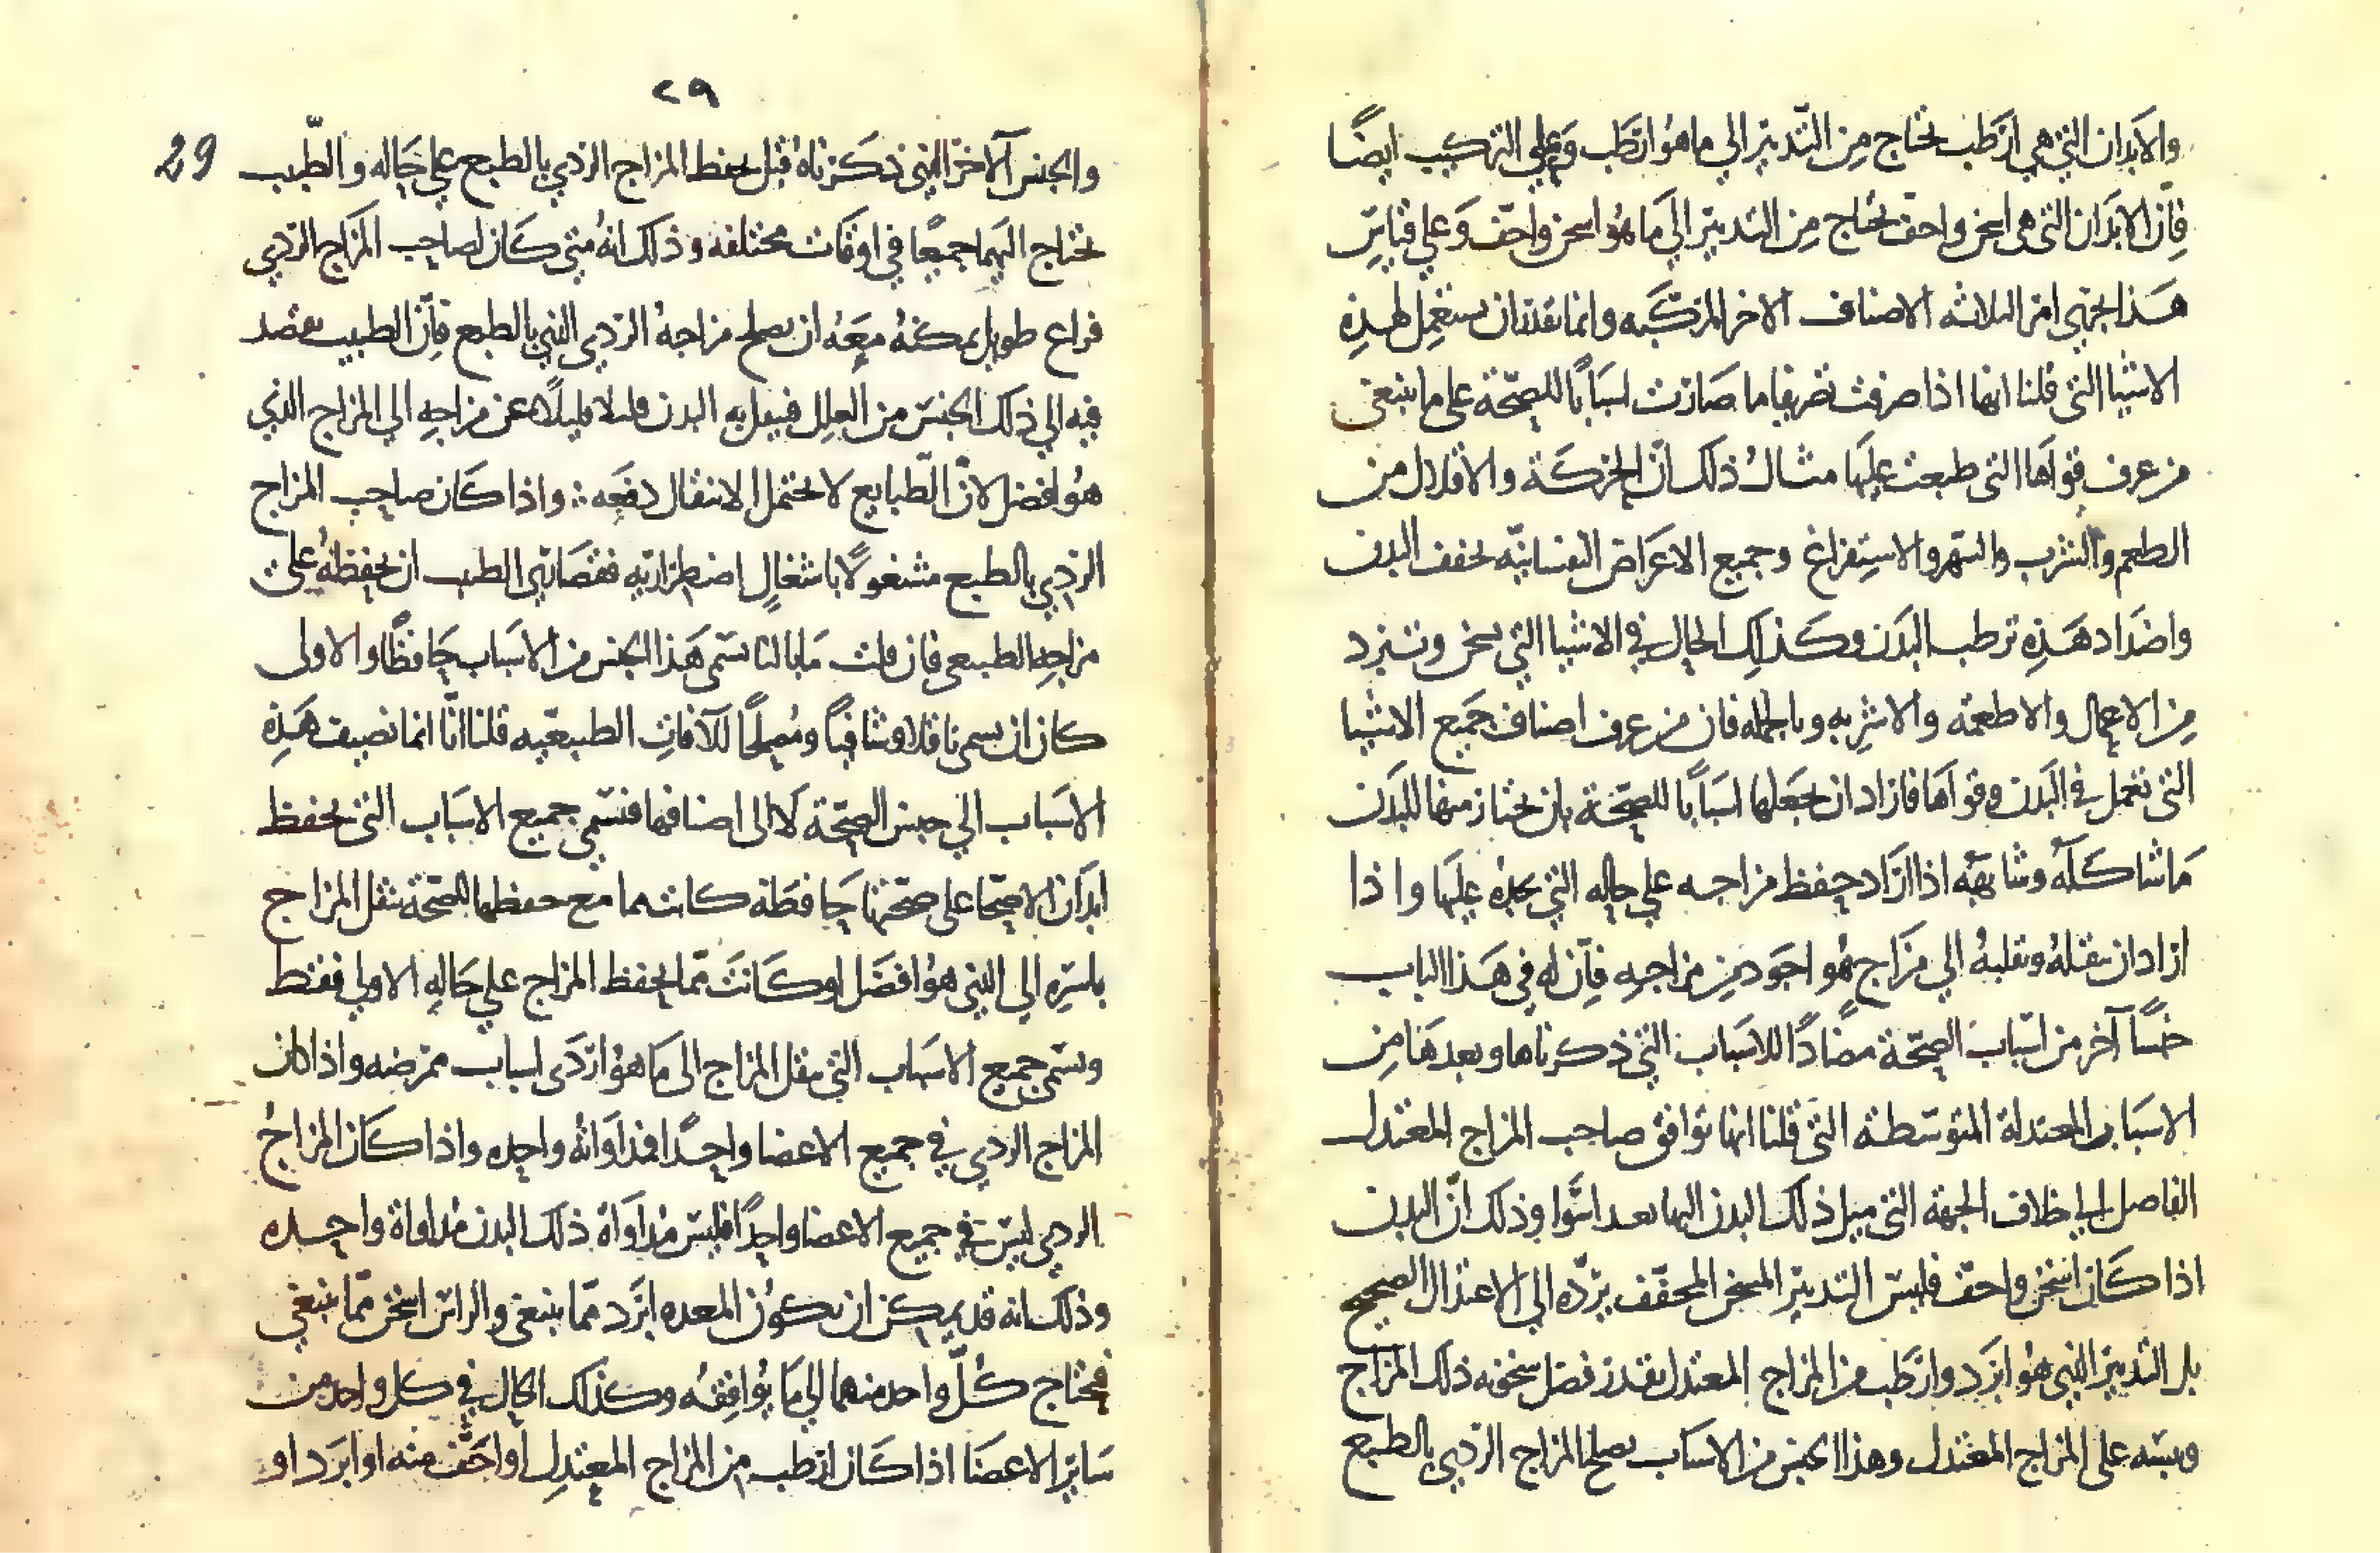 والابدان التي هي ارطب تحتاج من التدبير الي ما هو ارطب وعلي التركيب ايضًا
فان الابدان التي هي اسخن واجف تحتاج من التدبير الي ما هو اسخن واجف وعلي قياس
هذا يجري امر الثلاثه الاصناف الاخر المركبه وانما يقدر ان يستعمل لهذه
الاشيا التي قلنا انها اذا صرفت تصريفا ما صارت اسبابًا للصحة على ما ينبغي
من عرف قواها التي طبعت عليها مثال ذلك ان الحركة والاقلال من
الطعم والشرب والسهر والاستفراغ وجميع الاعراض النفسانيه تجفف البدن
واضداد هذه ترطب البدن وكذلك الحال في الاشيا التي تسخن وتبرد
من الاعمال والاطعمه والاشربه وبالجمله فان من عرف اصناف جميع الاشيا
التي تعمل في البدن وقواها فاراد ان يجعلها اسبابًا للصحة بان يختار منها للبدن
ما شاكله وشابهه اذا اراد حفظ مزاجه علي حاله التي يجده عليها واذا
اراد ان ينقله ويقلبه الي مزاج هو اجود من مزاجه فان له في هذا الباب
جنسًا آخر من اسباب الصحة مضادًا للاسباب التي ذكرناها وبعدها من
الاسباب المعتدلة المتوسطة التي قلنا انها توافق صاحب المزاج المعتدل
الفاضل الي خلاف الجهة التي ميل ذلك البدن اليها بعد اسوا وذلك ان البدن
اذا كان اسخن واجف فليس التدبير المسخن المجفف يرده الي الاعتدال الصحيح
بل التدبير الذي هو ابرد وارطب من المزاج المعتدل بقدر فضل سخونه ذلك المزاج
ويبسه على المزاج المعتدل وهذا الجنس من الاسباب يصلح المزاج الردي بالطبع
٢٩
29
والجنس الآخر الذي ذكرناه قبل يحفظ المزاج الردي بالطبع علي حاله والطبيب
يحتاج اليهما جميعًا في اوقات مختلفه وذلك انه متي كان لصاحب المزاج الردي
فراغ طويل يمكنه معه ان يصلح مزاجه الردي الذي بالطبع فان الطبيب يقصد
فيه الي ذلك الجنس من العلل فينقل به البدن قليلا قليلاً عن مزاجه الي المزاج الذي
هو افضل لان الطبايع لا تحتمل الانتقال دفعه ∴ واذا كان صاحب المزاج
الردي بالطبع مشغولاً باشغال اضطراريه فقصاري الطبيب ان يحفظه علي
مزاجه الطبيعي فان قلت ما بالنا نسمي هذا الجنس من الاسباب حافظًا والاولى
كان ان يسمى ناقلا وشافيًا ومُصلحًا للآفات الطبيعيه قلنا انّا انما نضيف هذه
الاسباب الي جنس الصحة لا الى اصنافها فنسمي جميع الاسباب التي تحفظ
ابدان الاصحا على صحتها حافظة كانت مما مع حفظها للصحة تنقل المزاج
باسره الي الذي هو افضل او كانت مما يحفظ المزاج علي حاله الاولي فقط
ونسمي جميع الاسباب التي تنقل المزاج الى ما هو اردى اسباب ممرضه واذا كان
المزاج الردي في جميع الاعضا واحدًا فمداواته واحده واذا كان المزاج
الردي ليس في جميع الاعضا واحدًا فليس مداواة ذلك البدن مداواة واحده
وذلك انه قد يمكن ان تكون المعده ابرد مما ينبغي والراس اسخن مما ينبغي
فيحتاج كل واحد منهما الي ما يوافقه وكذلك الحال في كل واحد من
ساير الاعضا اذا كان ارطب من المزاج المعتدل او اجف منه او ابرد او